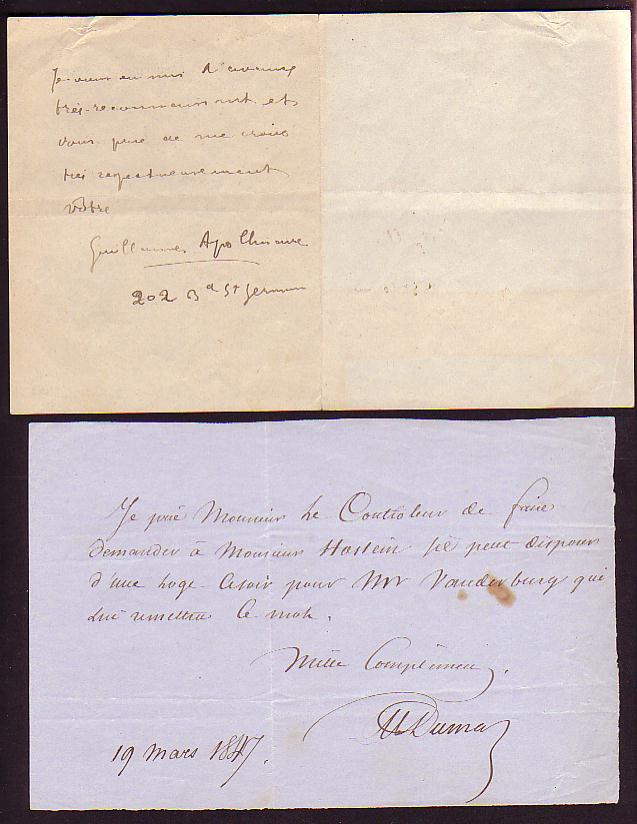 Je vous en suis d'avance
très-reconnaissant et
vous prie de me croire
très respectueusement
vôtre
Guillaume Apollinaire
202 Bd St Germain
Je prie Monsieur le Controleur de faire
demander à Monsieur Hostein s'il peut disposer
d'une loge ce soir pour Mr Vanderburg qui
lui remettra ce mot.
Mille Compliments.
Al Dumas
19 mars 1847.